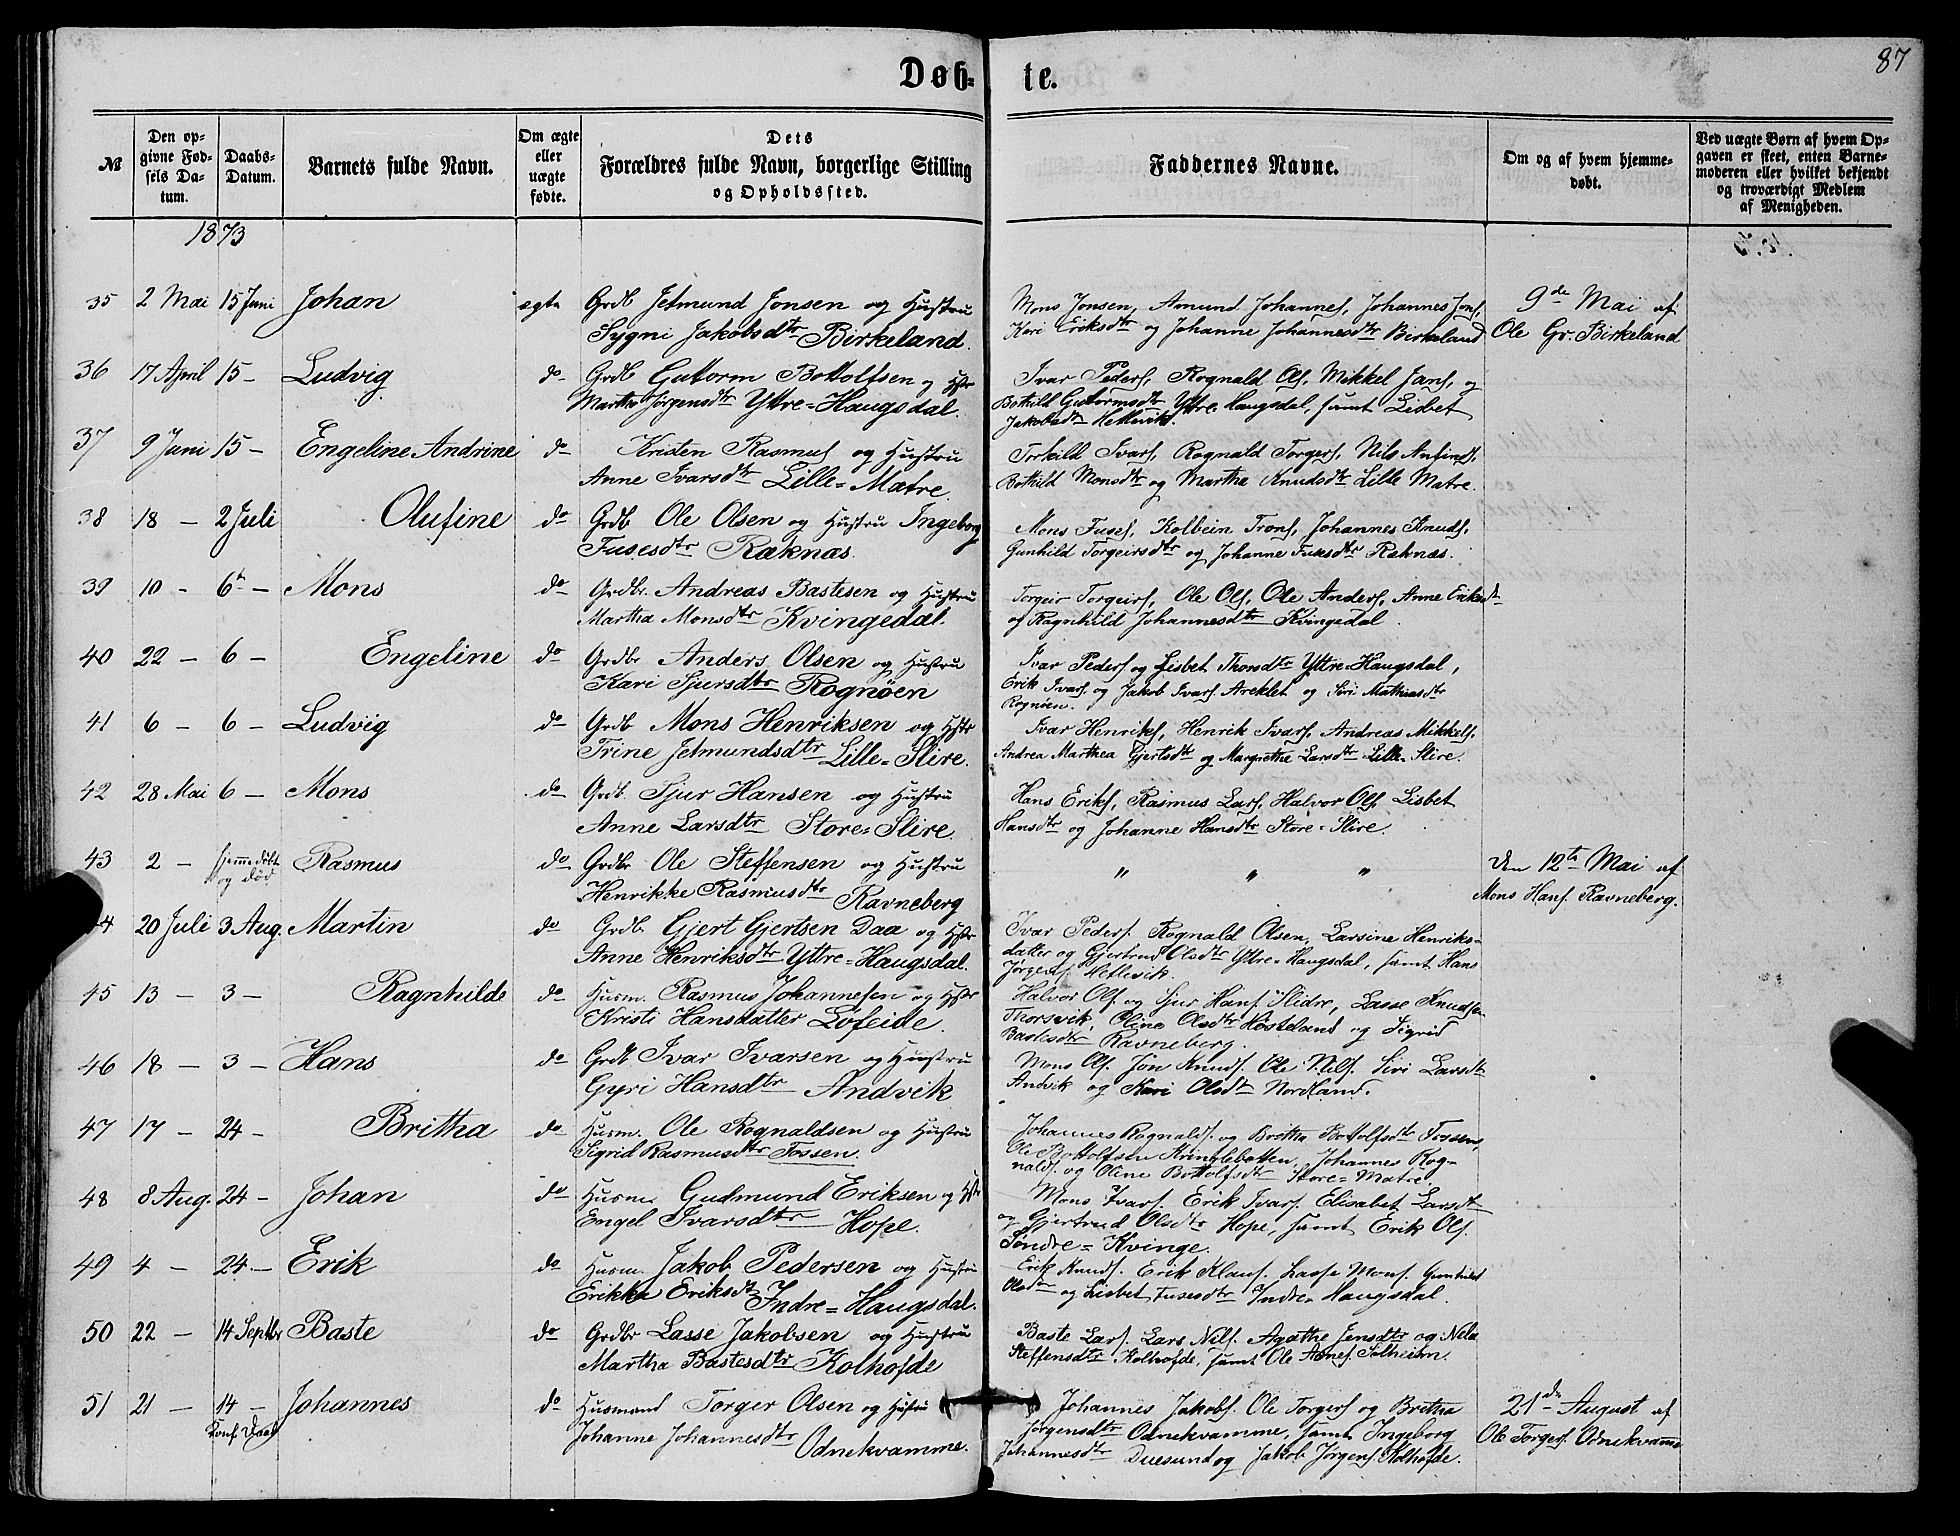 87
Døb-
te.
№
Den op-
givne Fød-
sels Da-
tum.
Daabs-
Datum.
Barnets fulde Navn.
Om ægte
eller
uægte
fødte.
Dets
Forældres fulde Navn, borgerlige Stilling
og Opholdssted.
Faddernes Navne.
Om og af hvem hjemme-
døbt.
Ved uægte Børn af hvem Op-
gaven er skeet, enten Barne-
moderen eller hvilket bekjendt
og troværdigt Medlem
af Menigheden.
1873
35 2 Mai 15 Juni Johan ægte Grdb Jetmund Jonsen og Hustru
Sygni Jakobsdtr Birkeland.
Mons Jonsen, Amund Johannes, Johannes Jons,
Kari Eriksdtr og Johanne Johannesdtr Birkeland
9de Mai af
Ole Gr. Birkeland
36 17 April 15 - Ludvig do Grdb Guttorm Bottolfsen og Hstr
Martha Jørgensdtr Yttre-Haugsdal.
Ivar Peders, Rognald Ols, Mikkel Jans, og
Bothild Guttormsdtr Yttre Haugsdal, samt Lisbet
Jakobsdtr Hetlevik.
37 9 Juni 15 - Engeline Andrine do Kristen Rasmus og Hustru
Anne Ivarsdtr Lille-Matre.
Torkild Ivars, Rognald Torgers, Nils Anfinds,
Bothild Monsdtr og Martha Knudsdtr Lille Matre.
38 18 - 2 Juli Olufine do Grdb Ole Olsen og Hustru Ingeborg
Fusesdtr Raknæs.
Mons Fuses, Kolbein Trons, Johannes Knuds,
Gunhild Torgeirsdtr og Johanne Fusesdtr Raknæs.
39 10 - 6te - Mons do Grdbr. Andreas Bastesen og Hustru
Martha Monsdtr Kvingedal.
Torgeir Torgeirs, Ole Ols, Ole Anders, Anne Eriksdtr
og Ragnhild Johannesdtr Kvingedal.
40 22 - 6 - Engeline do Grdbr Anders Olsen og Hustru
Kari Sjursdtr Rognøen
Ivar Peders og Lisbet Thorsdtr Yttre-Haugsdal,
Erik Ivars. og Jakob Ivars Areklet og Siri Mathiasdtr
Rognøen.
41 6 - 6 - Ludvig do Grdb Mons Henriksen og Hstr
Trine Jetmundsdtr Lille-Slire.
Ivar Henriks, Henrik Ivars, Andreas Mikkels,
Andrea Marthea Gjertsdtr og Margrethe Larsdtr Lille-Slire.
42 28 Mai 6 - Mons do Grdb. Sjur Hansen og Hustru
Anne Larsdtr Store-Slire.
Hans Eriks, Rasmus Lars, Halvor Ols, Lisbet
Hansdtr og Johanne Hansdtr Store-Slire.
43 2 - hjemmedøbt
og død
Rasmus do Grdbr Ole Steffensen og Hustru
Henrikke Rasmusdtr Ravneberg
" " "
Den 12te Mai af
Mons Hans. Ravneberg.
44 20 Juli 3 Aug. Martin do Grdb. Gjert Gjertsen Daa og Hstr
Anne Henriksdtr Yttre-Haugsdal.
Ivar Peders. Rognald Olsen, Larsine Henriks-
datter og Gjertrud Olsdtr Yttre-Haugsdal, samt Hans
Jørgens Hetlevik.
45 13 - 3 - Ragnhilde do Husm. Rasmus Johannesen og Hstr
Kristi Hansdatter Lofeide.
Halvor Ols. og Sjur Hans Slidre, Lasse Knudsen
Thorsvik, Oline Olsdtr Høsteland og Sigrid
Bastesdtr Ravneberg.
46 18 - 3 - Hans do Grdb Ivar Ivarsen og Hustru
Gyri Hansdtr Andvik
Mons Ols. Jon Knuds. Ole Nils. Siri Larsdtr
Andvik og Kari Olsdtr Nordland.
47 17 - 24 - Britha do Husm. Ole Rognaldsen og Hustru
Sigrid Rasmusdtr Fossen.
Johannes Rognalds. og Britha Bottolfsdtr Fossen,
Ole Bottolfsen Krinlebotten, Johannes Rog-
nalds. og Oline Bottolfsdtr Store-Matre.
48 8 Aug. 24 - Johan do Husm. Gudmund Eriksen og Hstr
Engel Ivarsdtr Hope.
Mons Ivars. Erik Ivars. Elisabet Larsdtr
og Gjertrud Olsdtr Hope, samt Erik Ols.
Søndre-Kvinge.
49 4 - 24 - Erik do Husm. Jakob Pedersen og Hustru
Erikka Eriksdtr Indre-Haugsdal.
Erik Knuds. Erik Klaus. Lasse Mons. Gunhild
Olsdtr og Lisbet Fusesdtr Indre-Haugsdal.
50 22 - 14 Septbr Baste do Grdbr Lasse Jakobsen og Hustru
Martha Bastesdtr Kolhofde
Baste Lars. Lars Nils. Agathe Jensdtr og Nela
Steffensdtr Kolhofde, samt Ole Arnes. Solheim.
51 21 - 14 -
Konf Daab
Johannes do Husmand Torger Olsen og Hustru
Johanne Johannesdtr Odnekvamme.
Johannes Jakobs. Ole Torgers og Britha
Jørgensdtr Odnekvamme, samt Ingeborg
Johannesdtr Duesund og Jakob Jørgens. Kolhofde.
21de August af
Ole Torgers. Odnekvamme